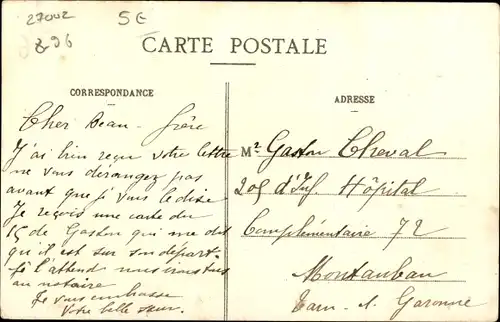 27002
5E
296
CARTE POSTALE
CORRESPONDANCE
ADRESSE
Cher Beau-frère
J'ai bien reçu votre lettre
ne vous dérangez pas
avant que je vous le dise
Je reçoid une carte du
15 de Gaston qui me dit
qu'il est sur son départ.
je l'attend nous irons tous
au notaire
Je vous embrasse
Votre belle sœur.
Mr Gaston Cheval
205 d'Inf. Hôpital
Complémentaire 72
Montauban
Tarn-&-Garonne